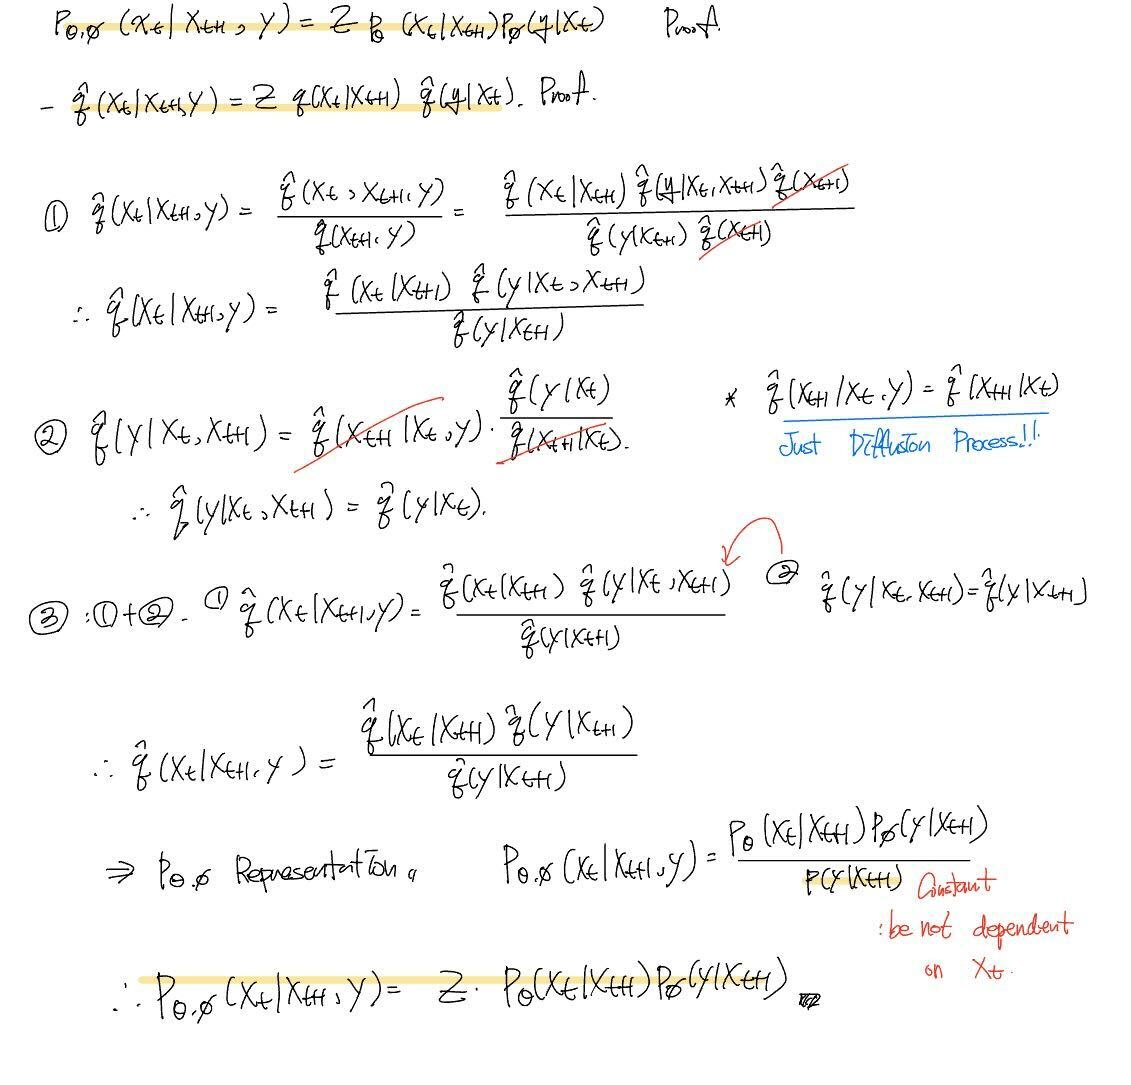 P_{θ,φ}(x_t|x_{t+1}, y) = Z P_θ(x_t|x_{t+1}) P_φ(y|x_t) Proof.
- q̂(x_t|x_{t+1}, y) = Z q(x_t|x_{t+1}) q̂(y|x_t). Proof.
① q̂(x_t|x_{t+1}, y) = q̂(x_t, x_{t+1}, y) / q̂(x_{t+1}, y) = q̂(x_t|x_{t+1}) q̂(y|x_t, x_{t+1}) q̂(x_{t+1}) / q̂(y|x_{t+1}) q̂(x_{t+1})
∴ q̂(x_t|x_{t+1}, y) = q̂(x_t|x_{t+1}) q̂(y|x_t, x_{t+1}) / q̂(y|x_{t+1})
② q̂(y|x_t, x_{t+1}) = q̂(x_{t+1}|x_t, y) · q̂(y|x_t) / q̂(x_{t+1}|x_t).
* q̂(x_{t+1}|x_t, y) = q̂(x_{t+1}|x_t)
Just Diffusion Process!!
∴ q̂(y|x_t, x_{t+1}) = q̂(y|x_t).
③ : ①+② - ① q̂(x_t|x_{t+1}, y) = q̂(x_t|x_{t+1}) q̂(y|x_t, x_{t+1}) / q̂(y|x_{t+1}) ② q̂(y|x_t, x_{t+1}) = q̂(y|x_{t+1})
∴ q̂(x_t|x_{t+1}, y) = q̂(x_t|x_{t+1}) q̂(y|x_{t+1}) / q̂(y|x_{t+1})
⇒ P_{θ,φ} Representation. P_{θ,φ}(x_t|x_{t+1}, y) = P_θ(x_t|x_{t+1}) P_φ(y|x_{t+1}) / P(y|x_{t+1})
Constant
: be not dependent
on x_t.
∴ P_{θ,φ}(x_t|x_{t+1}, y) = Z · P_θ(x_t|x_{t+1}) P_φ(y|x_{t+1})